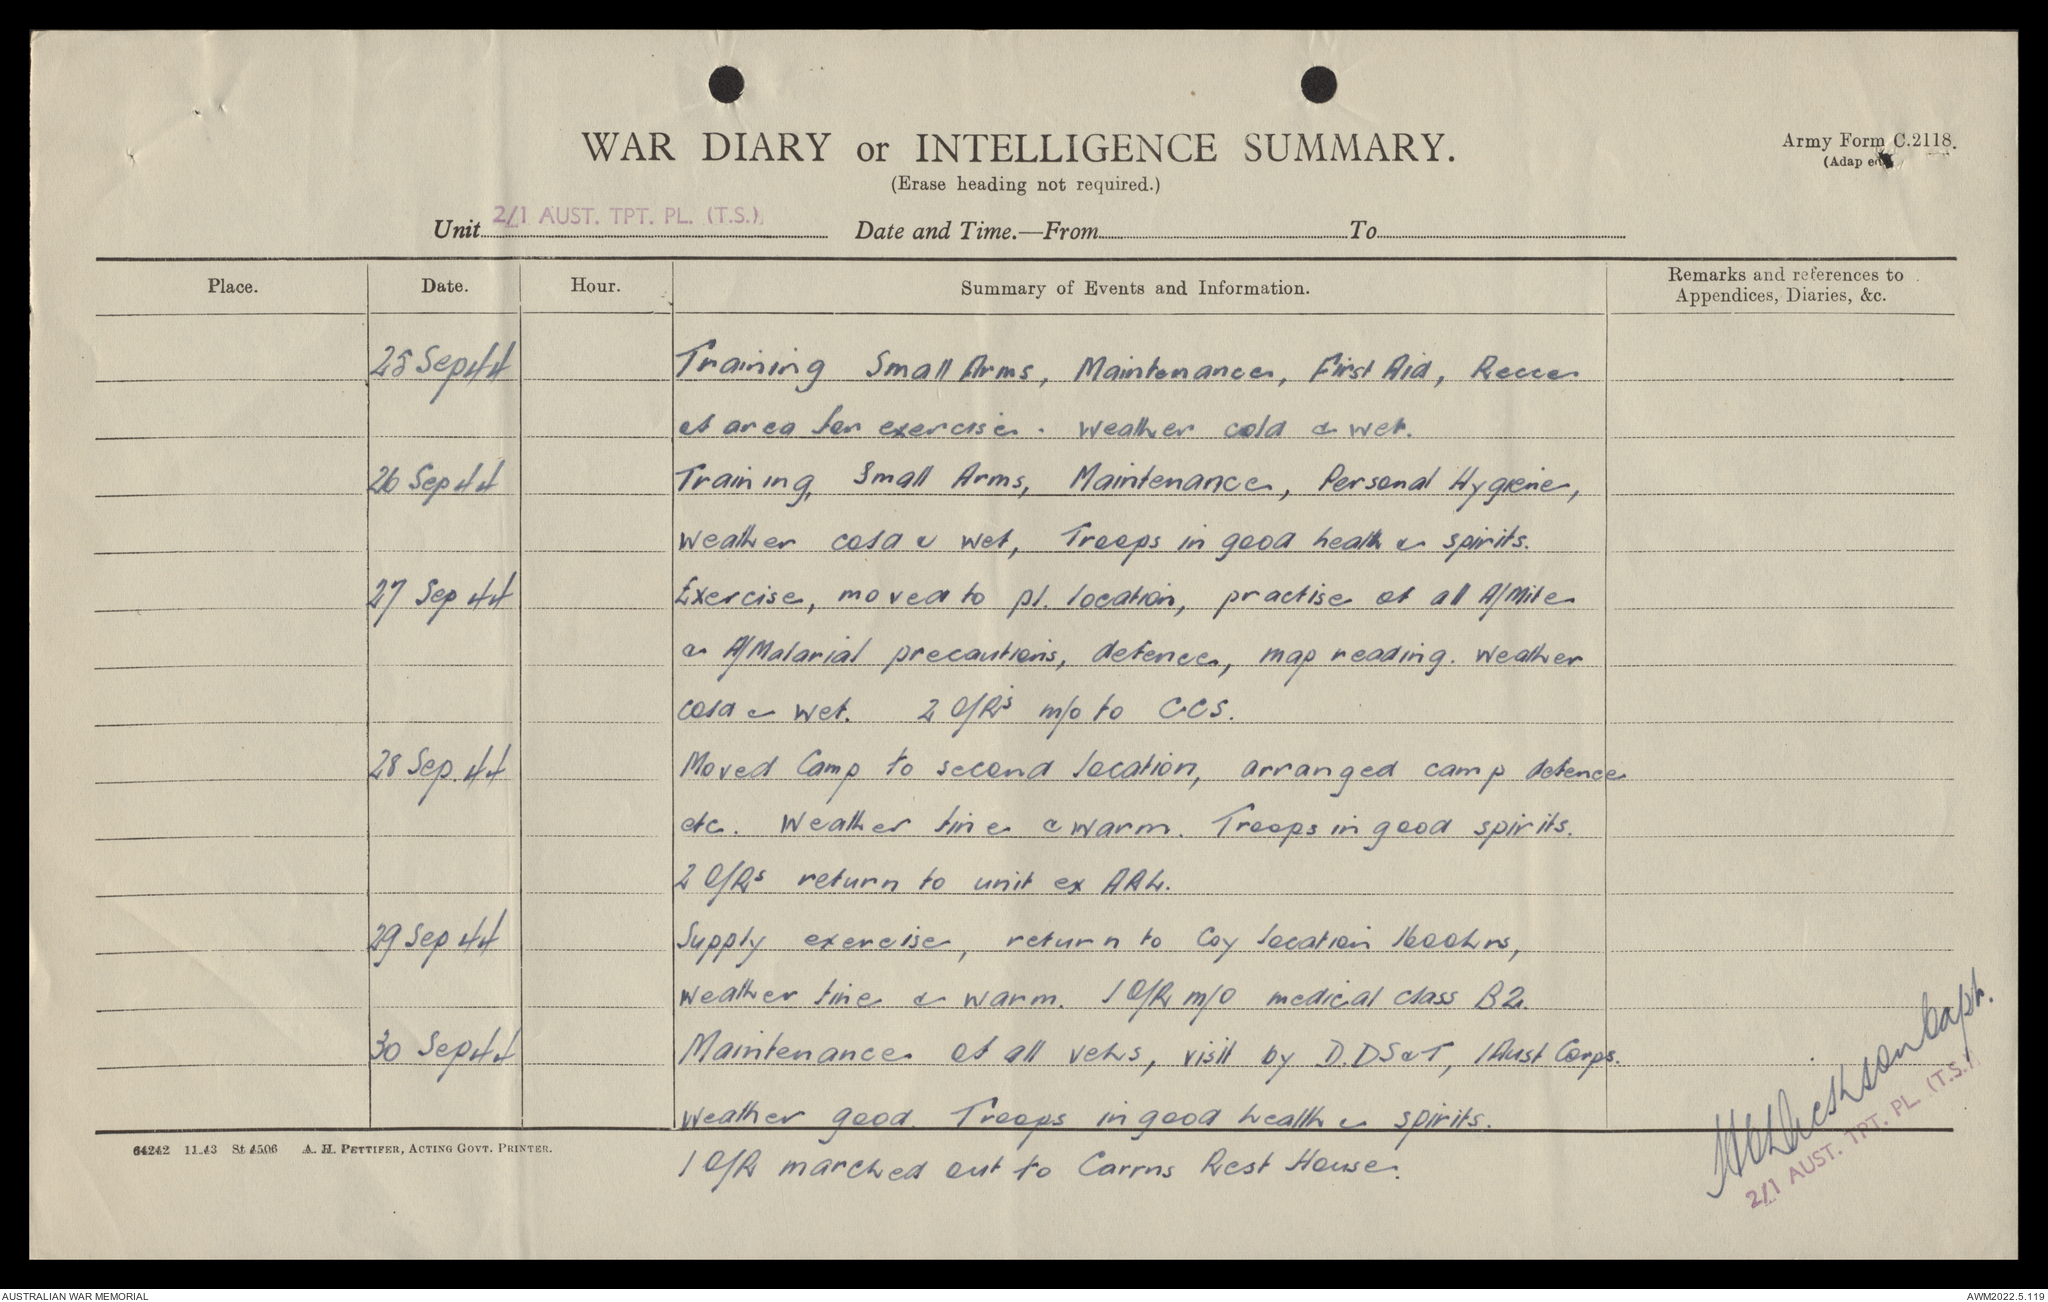 WAR DIARY or INTELLIGENCE SUMMARY.
Army Form C.2118.
(Erase heading not required.)
(Adap ed)
Unit 2/1 AUST. TPT. PL. (T.S.) Date and Time.—From To
Place. Date. Hour. Summary of Events and Information. Remarks and references to Appendices, Diaries, &c.
25 Sep 44 Training Small Arms, Maintenance, First Aid, Recce
of area for exercise. Weather cold & wet.
26 Sep 44 Training, Small Arms, Maintenance, Personal Hygiene,
Weather cold & wet, Troops in good health & spirits.
27 Sep 44 Exercise, moved to pl. location, practise of all A/Mite
& A/Malarial precautions, defence, map reading. Weather
cold & wet. 2 O/R's m/o to CCS.
28 Sep. 44 Moved Camp to second location, arranged camp defence
etc. Weather fine & warm. Troops in good spirits.
2 O/Rs return to unit ex
29 Sep 44 Supply exercise, return to Coy location 1600hrs,
Weather fine & warm. 1 O/R m/o medical class B2.
30 Sep 44 Maintenance of all vehs, visit by D.DS&T, 1 Aust Corps.
Weather good. Troops in good health & spirits.
1 O/R marched out to Carrns Rest House.
64242 11.43 St 4506 A. H. PETTIFER, ACTING GOVT. PRINTER.
Capt.
2/1 AUST. TPT. PL. (T.S.)
AUSTRALIAN WAR MEMORIAL
AWM2022.5.119